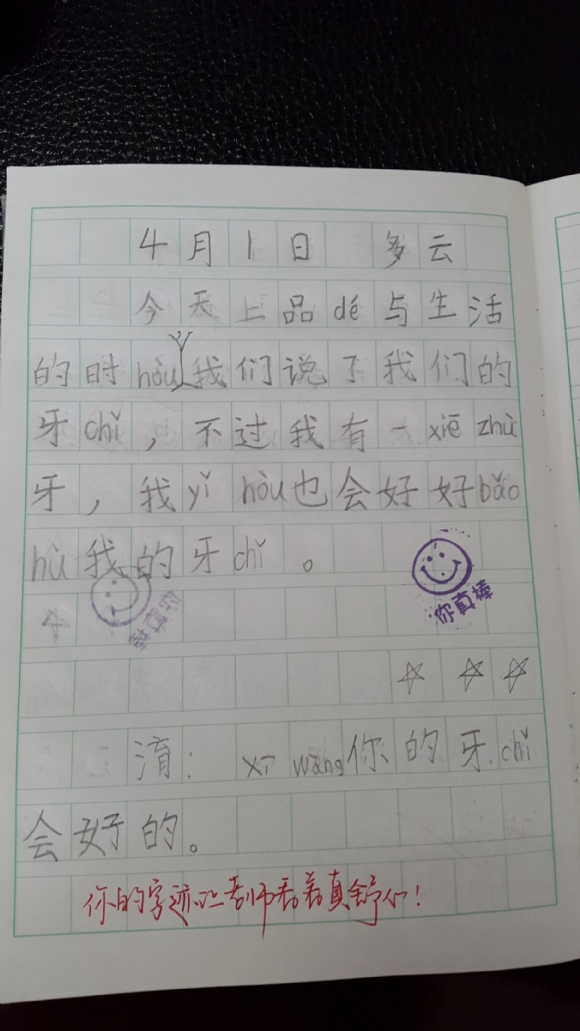 4月1日 多云
今天上品dé与生活
的时hòu我们说了我们的
牙chǐ,不过我有一xiē zhù
牙,我yǐ hòu也会好好bǎo
hù我的牙chǐ。
你真棒
你真棒
淯: xī wàng你的牙chǐ
会好的。
你的字迹让老师看着真舒心!